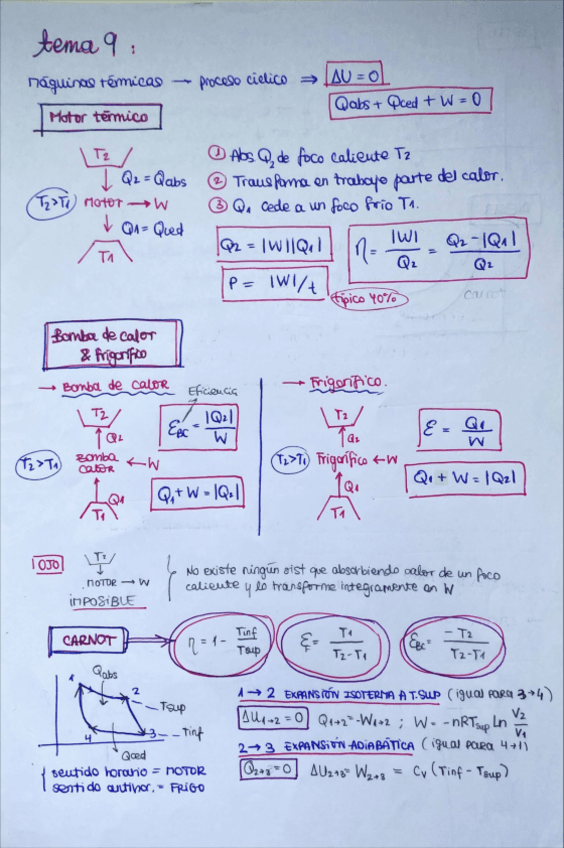 tema 9:
máquinas térmicas → proceso cíclico ⇒ ΔU = 0
Qabs + Qced + W = 0
Motor térmico
T2
Q2 = Qabs
T2>T1 MOTOR → W
Q1 = Qced
T1
① Abs Q2 de foco caliente T2
② Transforma en trabajo parte del calor.
③ Q1 cede a un foco frío T1.
Q2 = |W||Q1|
η = |W| / Q2 = Q2 - |Q1| / Q2
P = |W|/t
típico 40%
Bomba de calor
& frigorífico
→ BOMBA DE CALOR
Eficiencia
T2
Q2
T2>T1 BOMBA CALOR ← W
Q1
T1
εBC = |Q2| / W
Q1 + W = |Q2|
→ Frigorífico.
T2
Q2
T2>T1 Frigorífico ← W
Q1
T1
ε = Q1 / W
Q1 + W = |Q2|
! OJO
T2
MOTOR → W
IMPOSIBLE
No existe ningún sist que absorbiendo calor de un foco
caliente y lo transforme integramente en W
CARNOT
η = 1 - Tinf / Tsup
εF = T1 / T2-T1
εBC = -T2 / T2-T1
1
Qabs
2
Tsup
4
3
Tinf
Qced
sentido horario = MOTOR
sentido antihor. = FRIGO
1 → 2 EXPANSIÓN ISOTERMA A T.SUP (igual para 3→4)
ΔU1→2 = 0 Q1→2 = -W1→2 ; W = -nRTsup Ln V2/V1
2 → 3 EXPANSIÓN ADIABÁTICA (igual para 4→1)
Q2→3 = 0 ΔU2→3 = W2→3 = Cv (Tinf - Tsup)